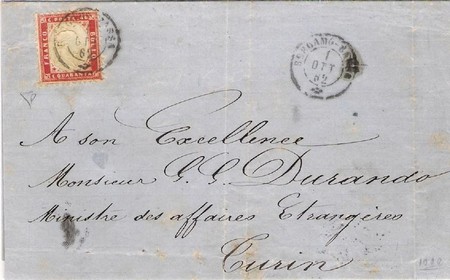 FRANCO
BOLLO
C. QUARANTA
1
OTT
62
A son Excellence
Monsieur G. G. Durando
Ministre des affaires Etrangères
Turin